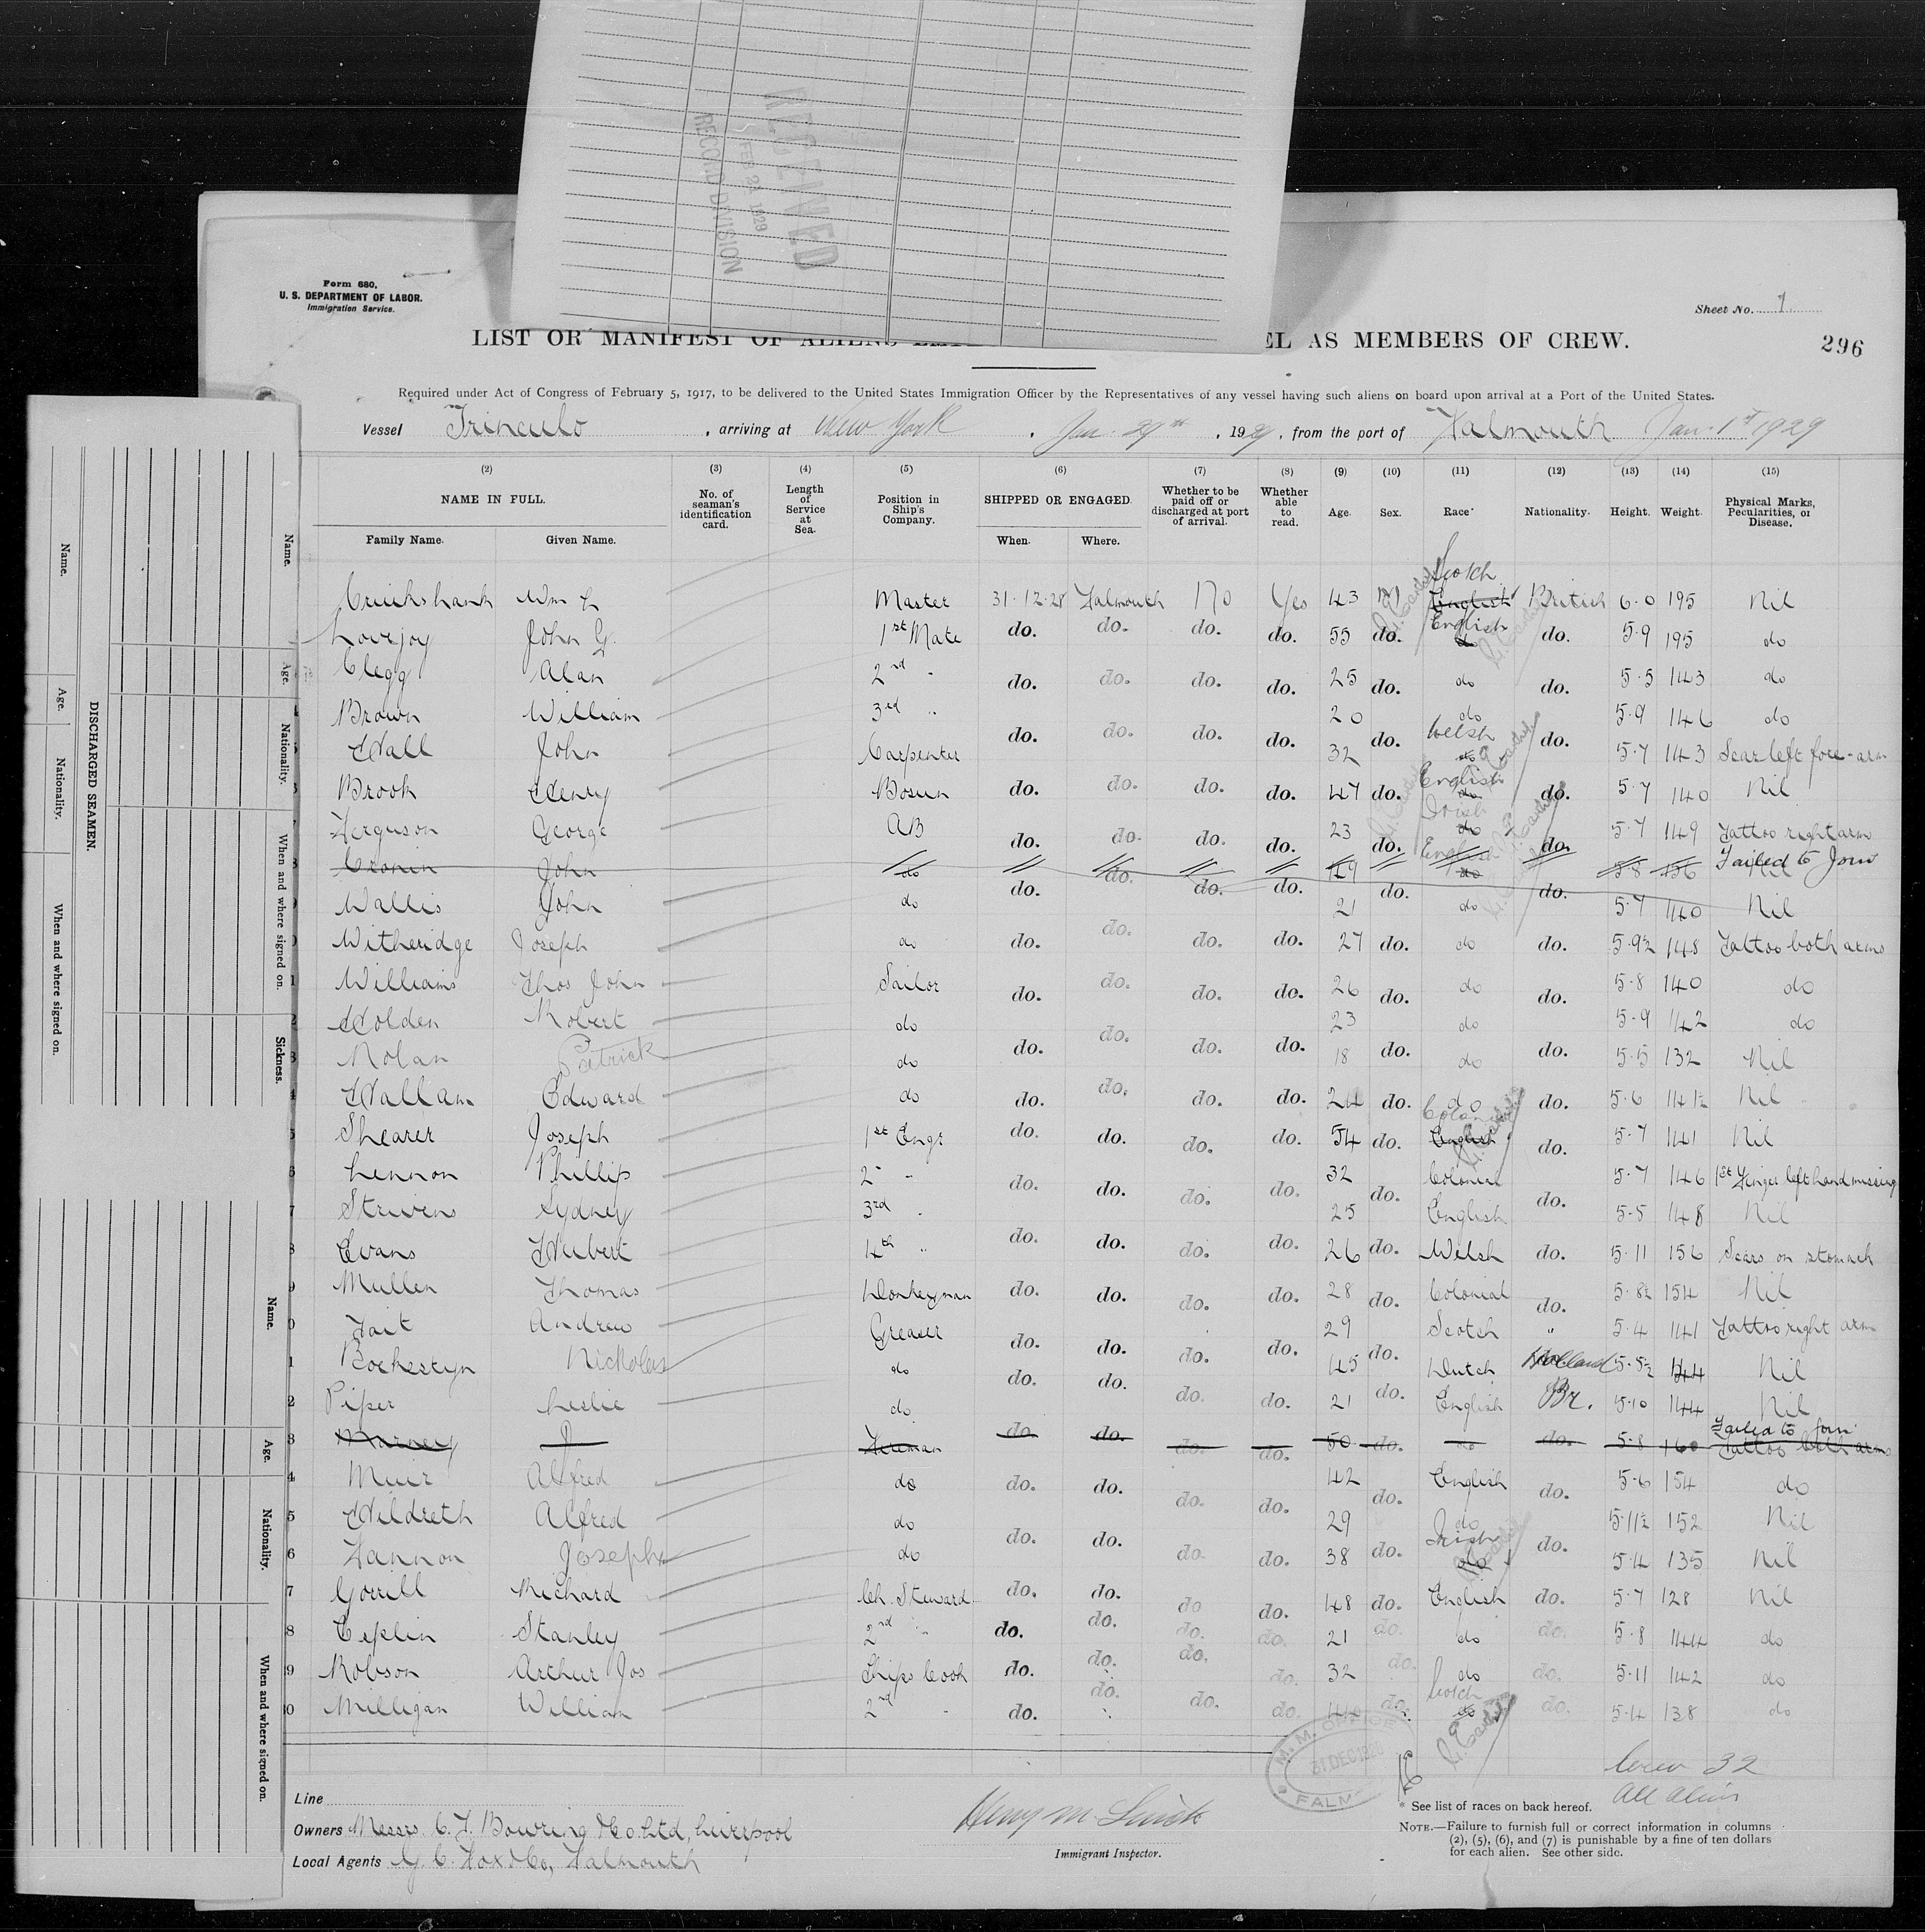 RECEIVED
FEB 23 1929
RECORD DIVISION
Form 680,
U. S. DEPARTMENT OF LABOR.
Immigration Service.
Sheet No. 1
LIST OR MANIFEST OF ALIENS EL AS MEMBERS OF CREW.
296
Required under Act of Congress of February 5, 1917, to be delivered to the United States Immigration Officer by the Representatives of any vessel having such aliens on board upon arrival at a Port of the United States.
Vessel Trinculo, arriving at New York, Jan. 29th, 1929, from the port of Falmouth Jan. 1st 1929
(2) (3) (4) (5) (6) (7) (8) (9) (10) (11) (12) (13) (14) (15)
NAME IN FULL. No. of seaman's identification card. Length of Service at Sea. Position in Ship's Company. SHIPPED OR ENGAGED. Whether to be paid off or discharged at port of arrival. Whether able to read. Age. Sex. Race* Nationality. Height. Weight. Physical Marks, Pecularities, or Disease.
Family Name. Given Name. When. Where.
Scotch
Cruickshank Wm L Master 31.12.28 Falmouth No Yes 43 M English British 6.0 195 Nil
Lovejoy John G. 1st Mate do. do. do. do. 55 do. English do do. 5.9 195 do
Clegg Alan 2nd " do. do. do. do. 25 do. do do. 5.5 143 do
Brown William 3rd " do. do. do. do. 20 do. do do. 5.9 146 do
Hall John Carpenter 32 Welsh do 5.7 143 Scar left fore-arm
Brook Henry Bosun do. do. do. do. 47 do. English do do. 5.7 140 Nil
Ferguson George AB do. do. do. do. 23 do. Irish do do. 5.7 149 Tattoo right arm
Cronin John do do. 49 English do 5.8 156 Nil Failed to Join
Wallis John do do. do. do. 21 do. do do. 5.7 140 Nil
Witheridge Joseph do do. do. do. do. 27 do. do do. 5.9½ 148 Tattoo both arms
Williams Thos John Sailor do. do. do. do. 26 do. do do. 5.8 140 do
Holden Robert do 23 do 5.9 142 do
Nolan Patrick do do. do. do. do. 18 do. do do. 5.5 132 Nil
Hallam Edward do do. do. do. do. 24 do. do do. 5.6 141½ Nil
Shearer Joseph 1st Engr do. do. do. do. 54 do. Colonial English do. 5.7 141 Nil
Lennon Phillip 2" " do. do. do. do. 32 do. Colonial do. 5.7 146 1st Finger left hand missing
Strivens Sydney 3rd " 25 English 5.5 148 Nil
Evans Hubert 4th " do. do. do. do. 26 do. Welsh do. 5.11 156 Scars on stomach
Mullen Thomas Donkeyman do. do. do. do. 28 do. Colonial do. 5.8½ 154 Nil
Tait Andrew Greaser do. do. do. do. 29 do. Scotch " 5.4 141 Tattoo right arm
Bochestyn Nickolas do do. do. 45 Dutch Holland 5.5½ 144 Nil
Piper Leslie do do. do. 21 do. English Br. 5.10 144 Nil
Marney J Fireman do. do. do. do. 50 do. do do. 5.8 160 Tattoo both arms Failed to join
Muir Alfred do do. do. do. do. 42 do. English do. 5.6 154 do
Hildreth Alfred do 29 do 5.11½ 152 Nil
Hannon Joseph do do. do. do. do. 38 do. Irish do do. 5.4 135 Nil
Gorrill Richard Ch. Steward do. do. do do. 48 do. English do. 5.7 128 Nil
Ceplin Stanley 2nd " do. do. do. do. 21 do. do do. 5.8 144 do
Robson Arthur Jos Ships Cook do. do. do. do. 32 do. do do. 5.11 142 do
Milligan William 2nd " do. do. do. do. 44 do. Scotch do do. 5.4 138 do
M. M. OFFICE
31 DEC 1928
FALM
Crew 32
All Alien
Line
Owners Messrs C. T. Bowring & Co. Ltd, Liverpool
Local Agents G. C. Fox & Co, Falmouth
Immigrant Inspector.
* See list of races on back hereof.
NOTE.—Failure to furnish full or correct information in columns
(2), (5), (6), and (7) is punishable by a fine of ten dollars
for each alien. See other side.
DISCHARGED SEAMEN.
Name. Age. Nationality. When and where signed on.
Name. Age. Nationality. When and where signed on. Sickness.
Name. Age. Nationality. When and where signed on.